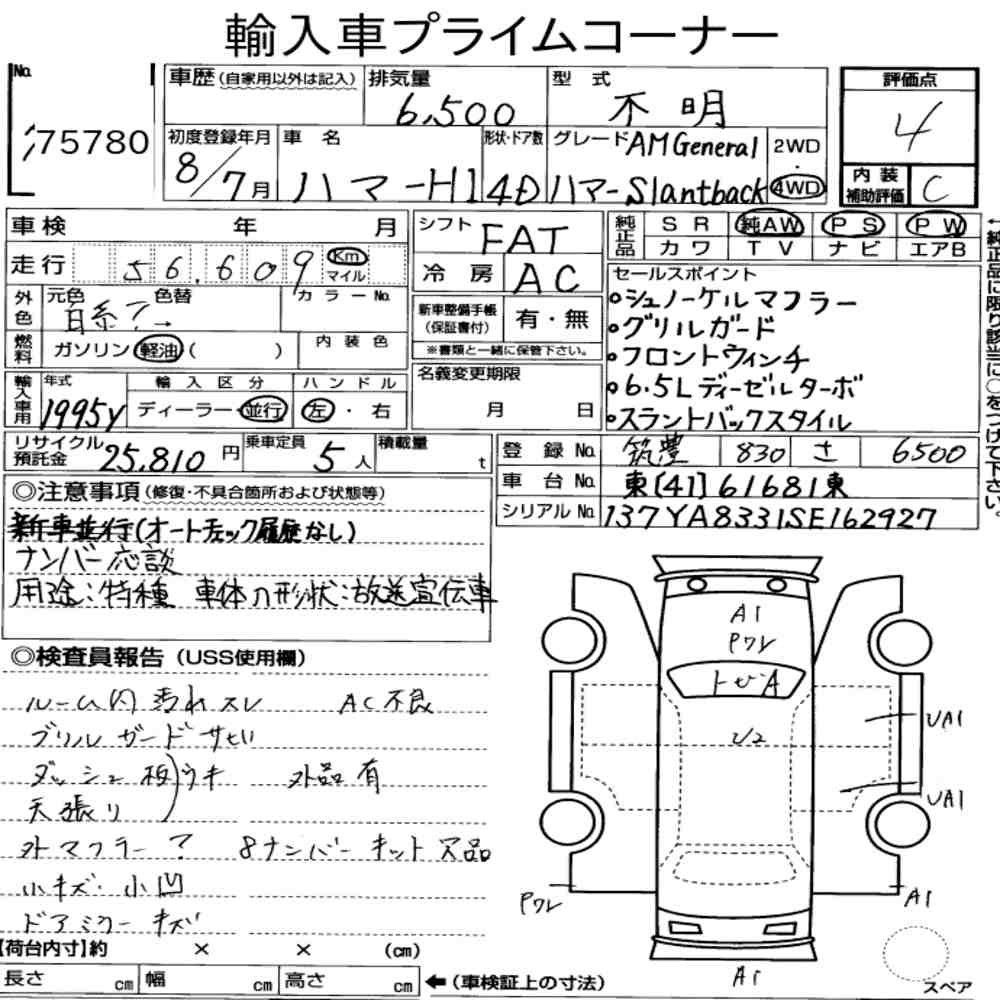 輸入車プライムコーナー
No. 75780
車歴(自家用以外は記入) 排気量 6,500 型式 不明 評価点 4
初度登録年月 8/7月 車名 ハマーH1 形状・ドア数 4D グレード AM General ハマー Slantback 2WD・4WD 内装補助評価 C
車検 年 月 シフト FAT 純正品 SR 純AW PS PW
カワ TV ナビ エアB
走行 56,609 Km マイル 冷房 AC
外色 元色 色替 カラーNo.
白系?→
燃料 ガソリン 軽油( ) 内装色
新車整備手帳(保証書付) 有・無
※書類と一緒に保管下さい。
輸入車用 年式 1995y 輸入区分 ディーラー・並行 ハンドル 左・右
名義変更期限 月 日
セールスポイント
○シュノーケルマフラー
○グリルガード
○フロントウィンチ
○6.5Lディーゼルターボ
○スラントバックスタイル
←純正品に限り該当に○をつけて下さい。
リサイクル預託金 25,810円 乗車定員 5人 積載量 t
登録No. 筑豊 830 さ 6500
車台No. 東[41]61681東
シリアルNo. 137YA8331SE162927
◎注意事項(修復・不具合箇所および状態等)
新車並行(オートチェック履歴なし)
ナンバー応談
用途:特種 車体の形状:放送宣伝車
◎検査員報告(USS使用欄)
ルーム内 汚れスレ AC不良
グリルガードサビ
ダッシュ板)ウキ 外品有
天張り
外マフラー? 8ナンバーキット欠品
小キズ・小凹
ドアミラーキズ
【荷台内寸】約 × × (cm)
長さ cm 幅 cm 高さ cm ←(車検証上の寸法)
A1
Pワレ
トビA
U2
UA1
UA1
Pワレ
A1
A1
スペア